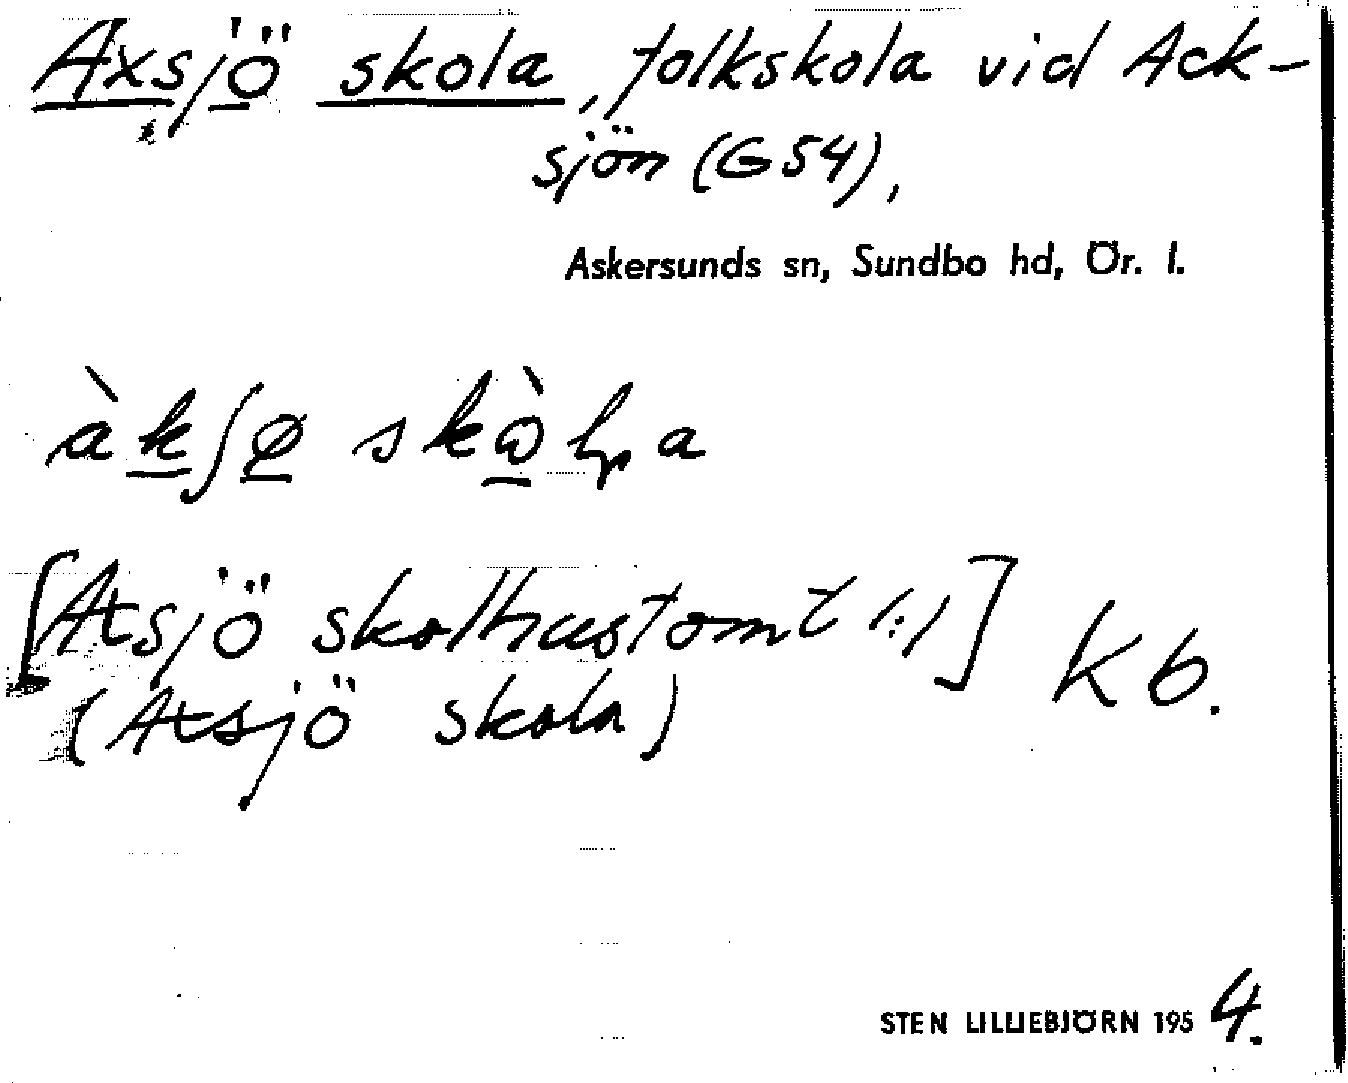 Axsjö skola, folkskola vid Ack-
sjön (G54),
Askersunds sn, Sundbo hd, Ör. l.
[Axsjö skolhustomt /:/] Kb.
(Axsjö skola)
STEN LILLIEBJÖRN 1954.